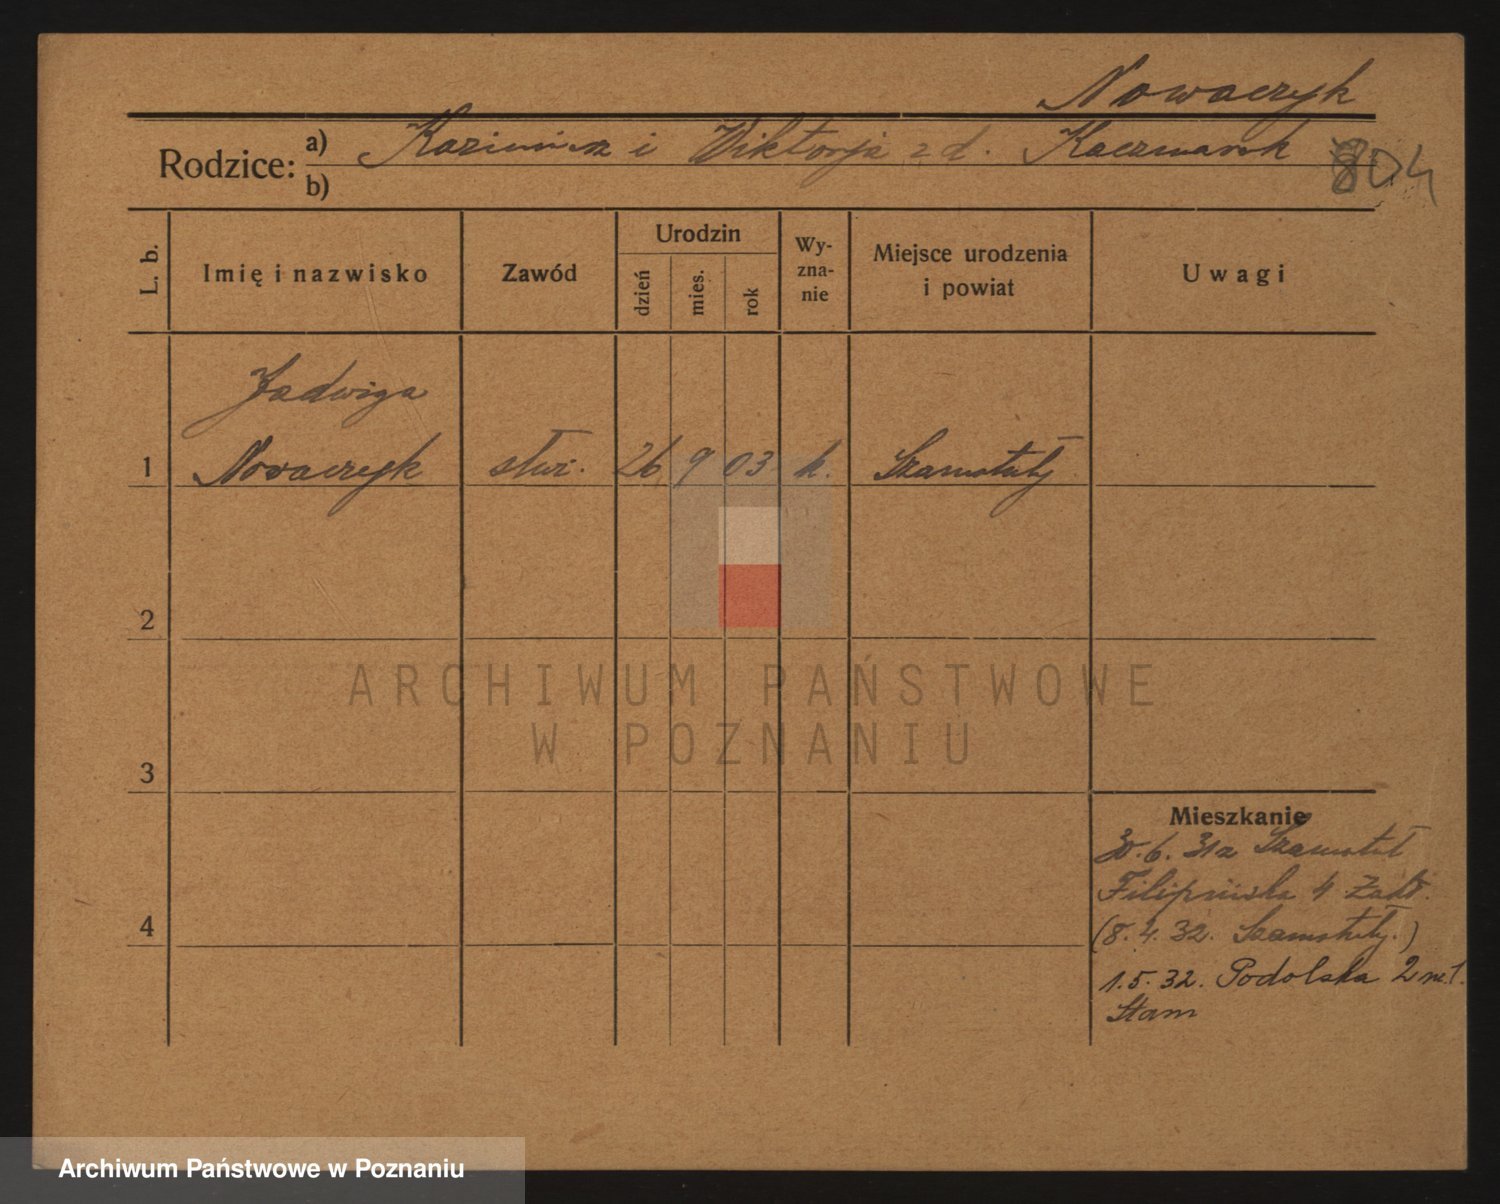 Nowaczyk
Rodzice: a) Kazimierz i Wiktorja z d. Kaczmarek 804
b)
L. b. Imię i nazwisko Zawód Urodzin dzień mies. rok Wyznanie Miejsce urodzenia i powiat Uwagi
Jadwiga
1 Nowaczyk służ. 26 9 03 k. Szamotuły
2
ARCHIWUM PAŃSTWOWE
W POZNANIU
3
Mieszkanie
30.6.31 z Szamotuł
Filipińska 4
4
(8.4.32. Szamotuły.)
1.5.32. Podolska 2
Archiwum Państwowe w Poznaniu